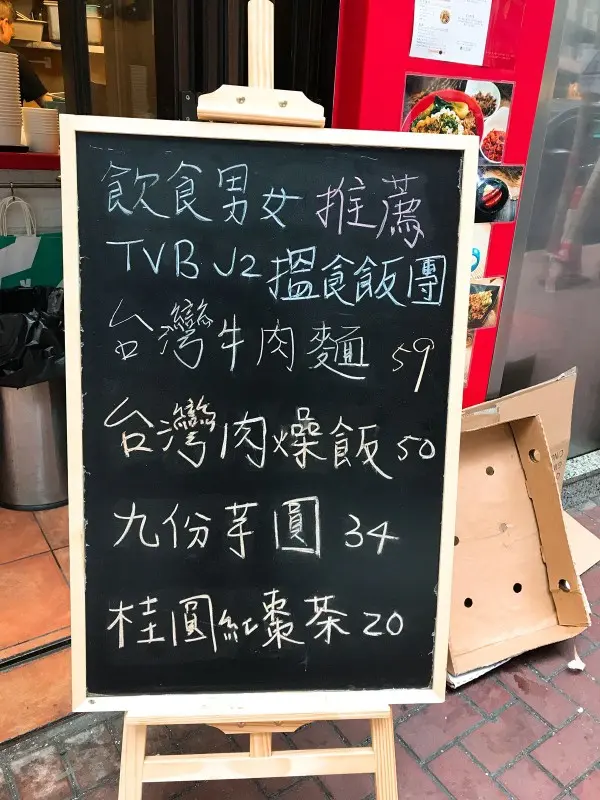 飲食男女 推薦
TVB J2 搵食飯團
台灣牛肉麵 59
台灣肉燥飯 50
九份芋圓 34
桂圓紅棗茶 20